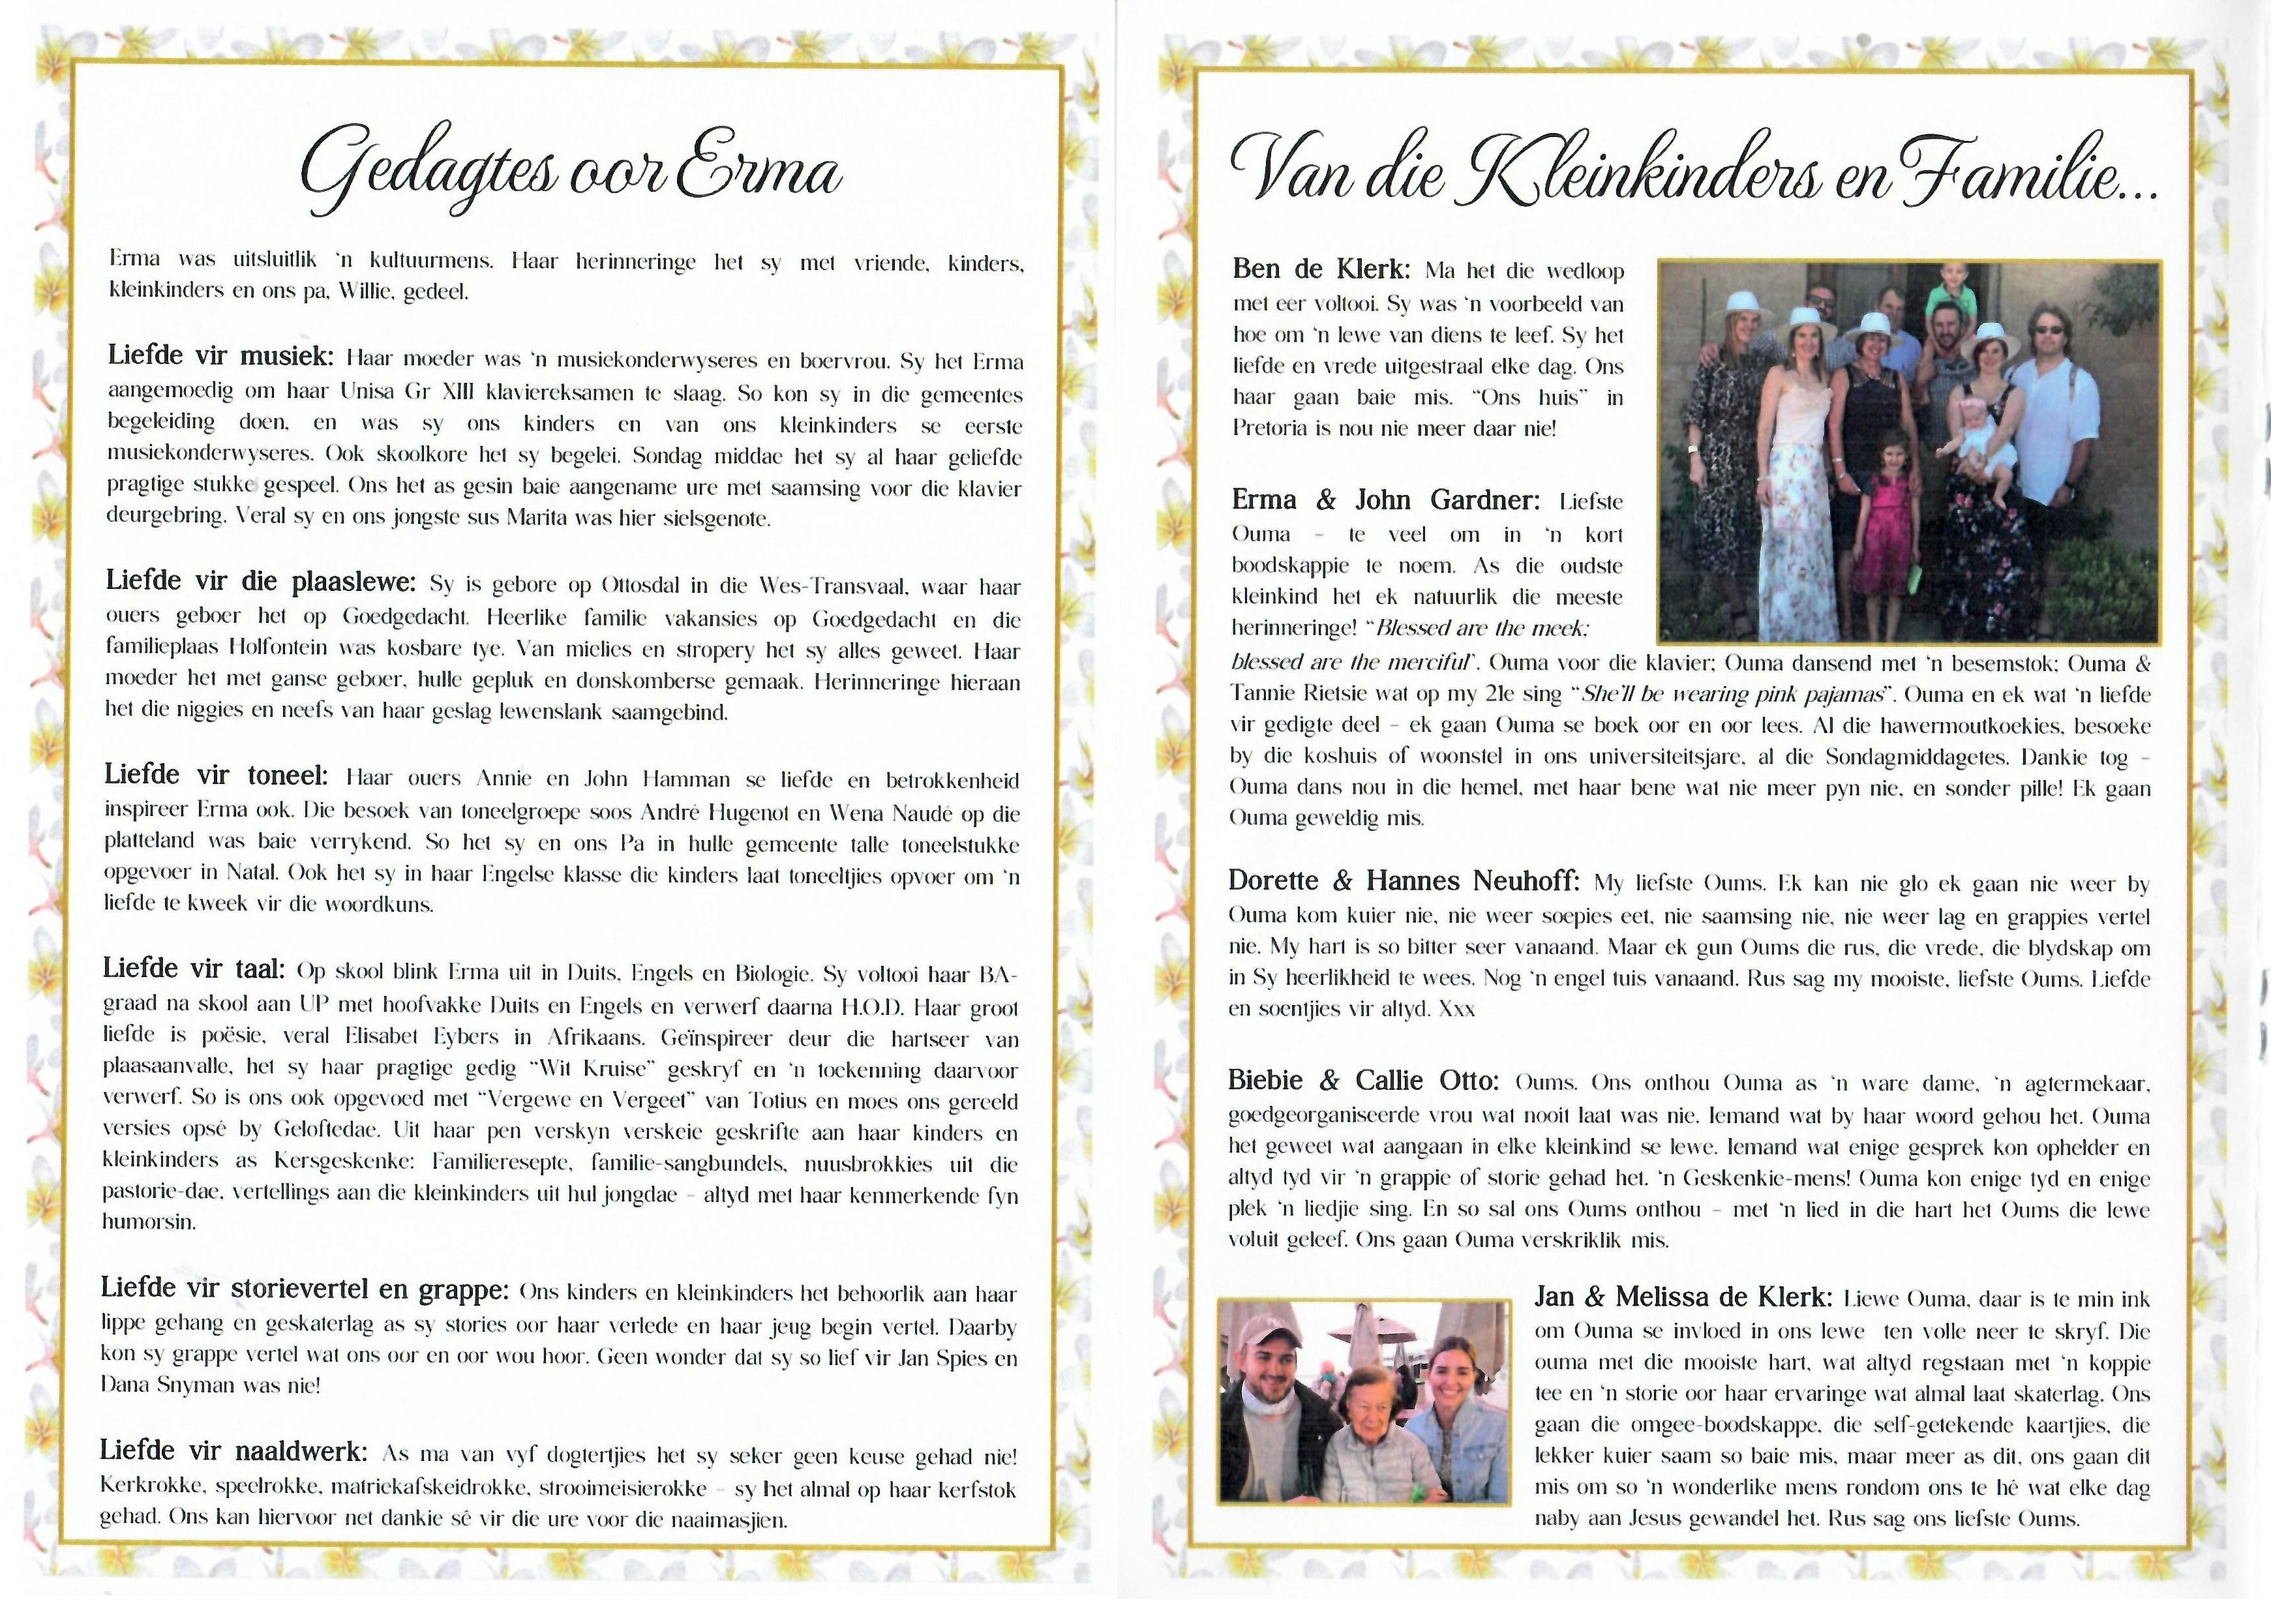 Gedagtes oor Erma
Erma was uitsluitlik 'n kultuurmens. Haar herinneringe het sy met vriende, kinders,
kleinkinders en ons pa, Willie, gedeel.
Liefde vir musiek: Haar moeder was 'n musiekonderwyseres en boervrou. Sy het Erma
aangemoedig om haar Unisa Gr XIII klaviereksamen te slaag. So kon sy in die gemeentes
begeleiding doen, en was sy ons kinders en van ons kleinkinders se eerste
musiekonderwyseres. Ook skoolkore het sy begelei. Sondag middae het sy al haar geliefde
pragtige stukke gespeel. Ons het as gesin baie aangename ure met saamsing voor die klavier
deurgebring. Veral sy en ons jongste sus Marita was hier sielsgenote.
Liefde vir die plaaslewe: Sy is gebore op Ottosdal in die Wes-Transvaal, waar haar
ouers geboer het op Goedgedacht. Heerlike familie vakansies op Goedgedacht en die
familieplaas Holfontein was kosbare tye. Van mielies en stropery het sy alles geweet. Haar
moeder het met ganse geboer, hulle gepluk en donskomberse gemaak. Herinneringe hieraan
het die niggies en neefs van haar geslag lewenslank saamgebind.
Liefde vir toneel: Haar ouers Annie en John Hamman se liefde en betrokkenheid
inspireer Erma ook. Die besoek van toneelgroepe soos André Hugenot en Wena Naudé op die
platteland was baie verrykend. So het sy en ons Pa in hulle gemeente talle toneelstukke
opgevoer in Natal. Ook het sy in haar Engelse klasse die kinders laat toneeltjies opvoer om 'n
liefde te kweek vir die woordkuns.
Liefde vir taal: Op skool blink Erma uit in Duits, Engels en Biologie. Sy voltooi haar BA-
graad na skool aan UP met hoofvakke Duits en Engels en verwerf daarna H.O.D. Haar groot
liefde is poësie, veral Elisabet Eybers in Afrikaans. Geïnspireer deur die hartseer van
plaasaanvalle, het sy haar pragtige gedig "Wit Kruise" geskryf en 'n toekenning daarvoor
verwerf. So is ons ook opgevoed met "Vergewe en Vergeet" van Totius en moes ons gereeld
versies opsê by Geloftedae. Uit haar pen verskyn verskeie geskrifte aan haar kinders en
kleinkinders as Kersgeskenke: Familieresepte, familie-sangbundels, nuusbrokkies uit die
pastorie-dae, vertellings aan die kleinkinders uit hul jongdae – altyd met haar kenmerkende fyn
humorsin.
Liefde vir storievertel en grappe: Ons kinders en kleinkinders het behoorlik aan haar
lippe gehang en geskaterlag as sy stories oor haar verlede en haar jeug begin vertel. Daarby
kon sy grappe vertel wat ons oor en oor wou hoor. Geen wonder dat sy so lief vir Jan Spies en
Dana Snyman was nie!
Liefde vir naaldwerk: As ma van vyf dogtertjies het sy seker geen keuse gehad nie!
Kerkrokke, speelrokke, matriekafskeidrokke, strooimeisierokke – sy het almal op haar kerfstok
gehad. Ons kan hiervoor net dankie sê vir die ure voor die naaimasjien.
Van die Kleinkinders en Familie...
Ben de Klerk: Ma het die wedloop
met eer voltooi. Sy was 'n voorbeeld van
hoe om 'n lewe van diens te leef. Sy het
liefde en vrede uitgestraal elke dag. Ons
haar gaan baie mis. "Ons huis" in
Pretoria is nou nie meer daar nie!
Erma & John Gardner: Liefste
Ouma – te veel om in 'n kort
boodskappie te noem. As die oudste
kleinkind het ek natuurlik die meeste
herinneringe! "Blessed are the meek;
blessed are the merciful". Ouma voor die klavier; Ouma dansend met 'n besemstok; Ouma &
Tannie Rietsie wat op my 21e sing "She'll be wearing pink pajamas". Ouma en ek wat 'n liefde
vir gedigte deel – ek gaan Ouma se boek oor en oor lees. Al die hawermoutkoekies, besoeke
by die koshuis of woonstel in ons universiteitsjare, al die Sondagmiddagetes. Dankie tog –
Ouma dans nou in die hemel, met haar bene wat nie meer pyn nie, en sonder pille! Ek gaan
Ouma geweldig mis.
Dorette & Hannes Neuhoff: My liefste Oums. Ek kan nie glo ek gaan nie weer by
Ouma kom kuier nie, nie weer soepies eet, nie saamsing nie, nie weer lag en grappies vertel
nie. My hart is so bitter seer vanaand. Maar ek gun Oums die rus, die vrede, die blydskap om
in Sy heerlikheid te wees. Nog 'n engel tuis vanaand. Rus sag my mooiste, liefste Oums. Liefde
en soentjies vir altyd. Xxx
Biebie & Callie Otto: Oums. Ons onthou Ouma as 'n ware dame, 'n agtermekaar,
goedgeorganiseerde vrou wat nooit laat was nie. Iemand wat by haar woord gehou het. Ouma
het geweet wat aangaan in elke kleinkind se lewe. Iemand wat enige gesprek kon ophelder en
altyd tyd vir 'n grappie of storie gehad het. 'n Geskenkie-mens! Ouma kon enige tyd en enige
plek 'n liedjie sing. En so sal ons Oums onthou – met 'n lied in die hart het Oums die lewe
voluit geleef. Ons gaan Ouma verskriklik mis.
Jan & Melissa de Klerk: Liewe Ouma, daar is te min ink
om Ouma se invloed in ons lewe ten volle neer te skryf. Die
ouma met die mooiste hart, wat altyd regstaan met 'n koppie
tee en 'n storie oor haar ervaringe wat almal laat skaterlag. Ons
gaan die omgee-boodskappe, die self-getekende kaartjies, die
lekker kuier saam so baie mis, maar meer as dit, ons gaan dit
mis om so 'n wonderlike mens rondom ons te hê wat elke dag
naby aan Jesus gewandel het. Rus sag ons liefste Oums.